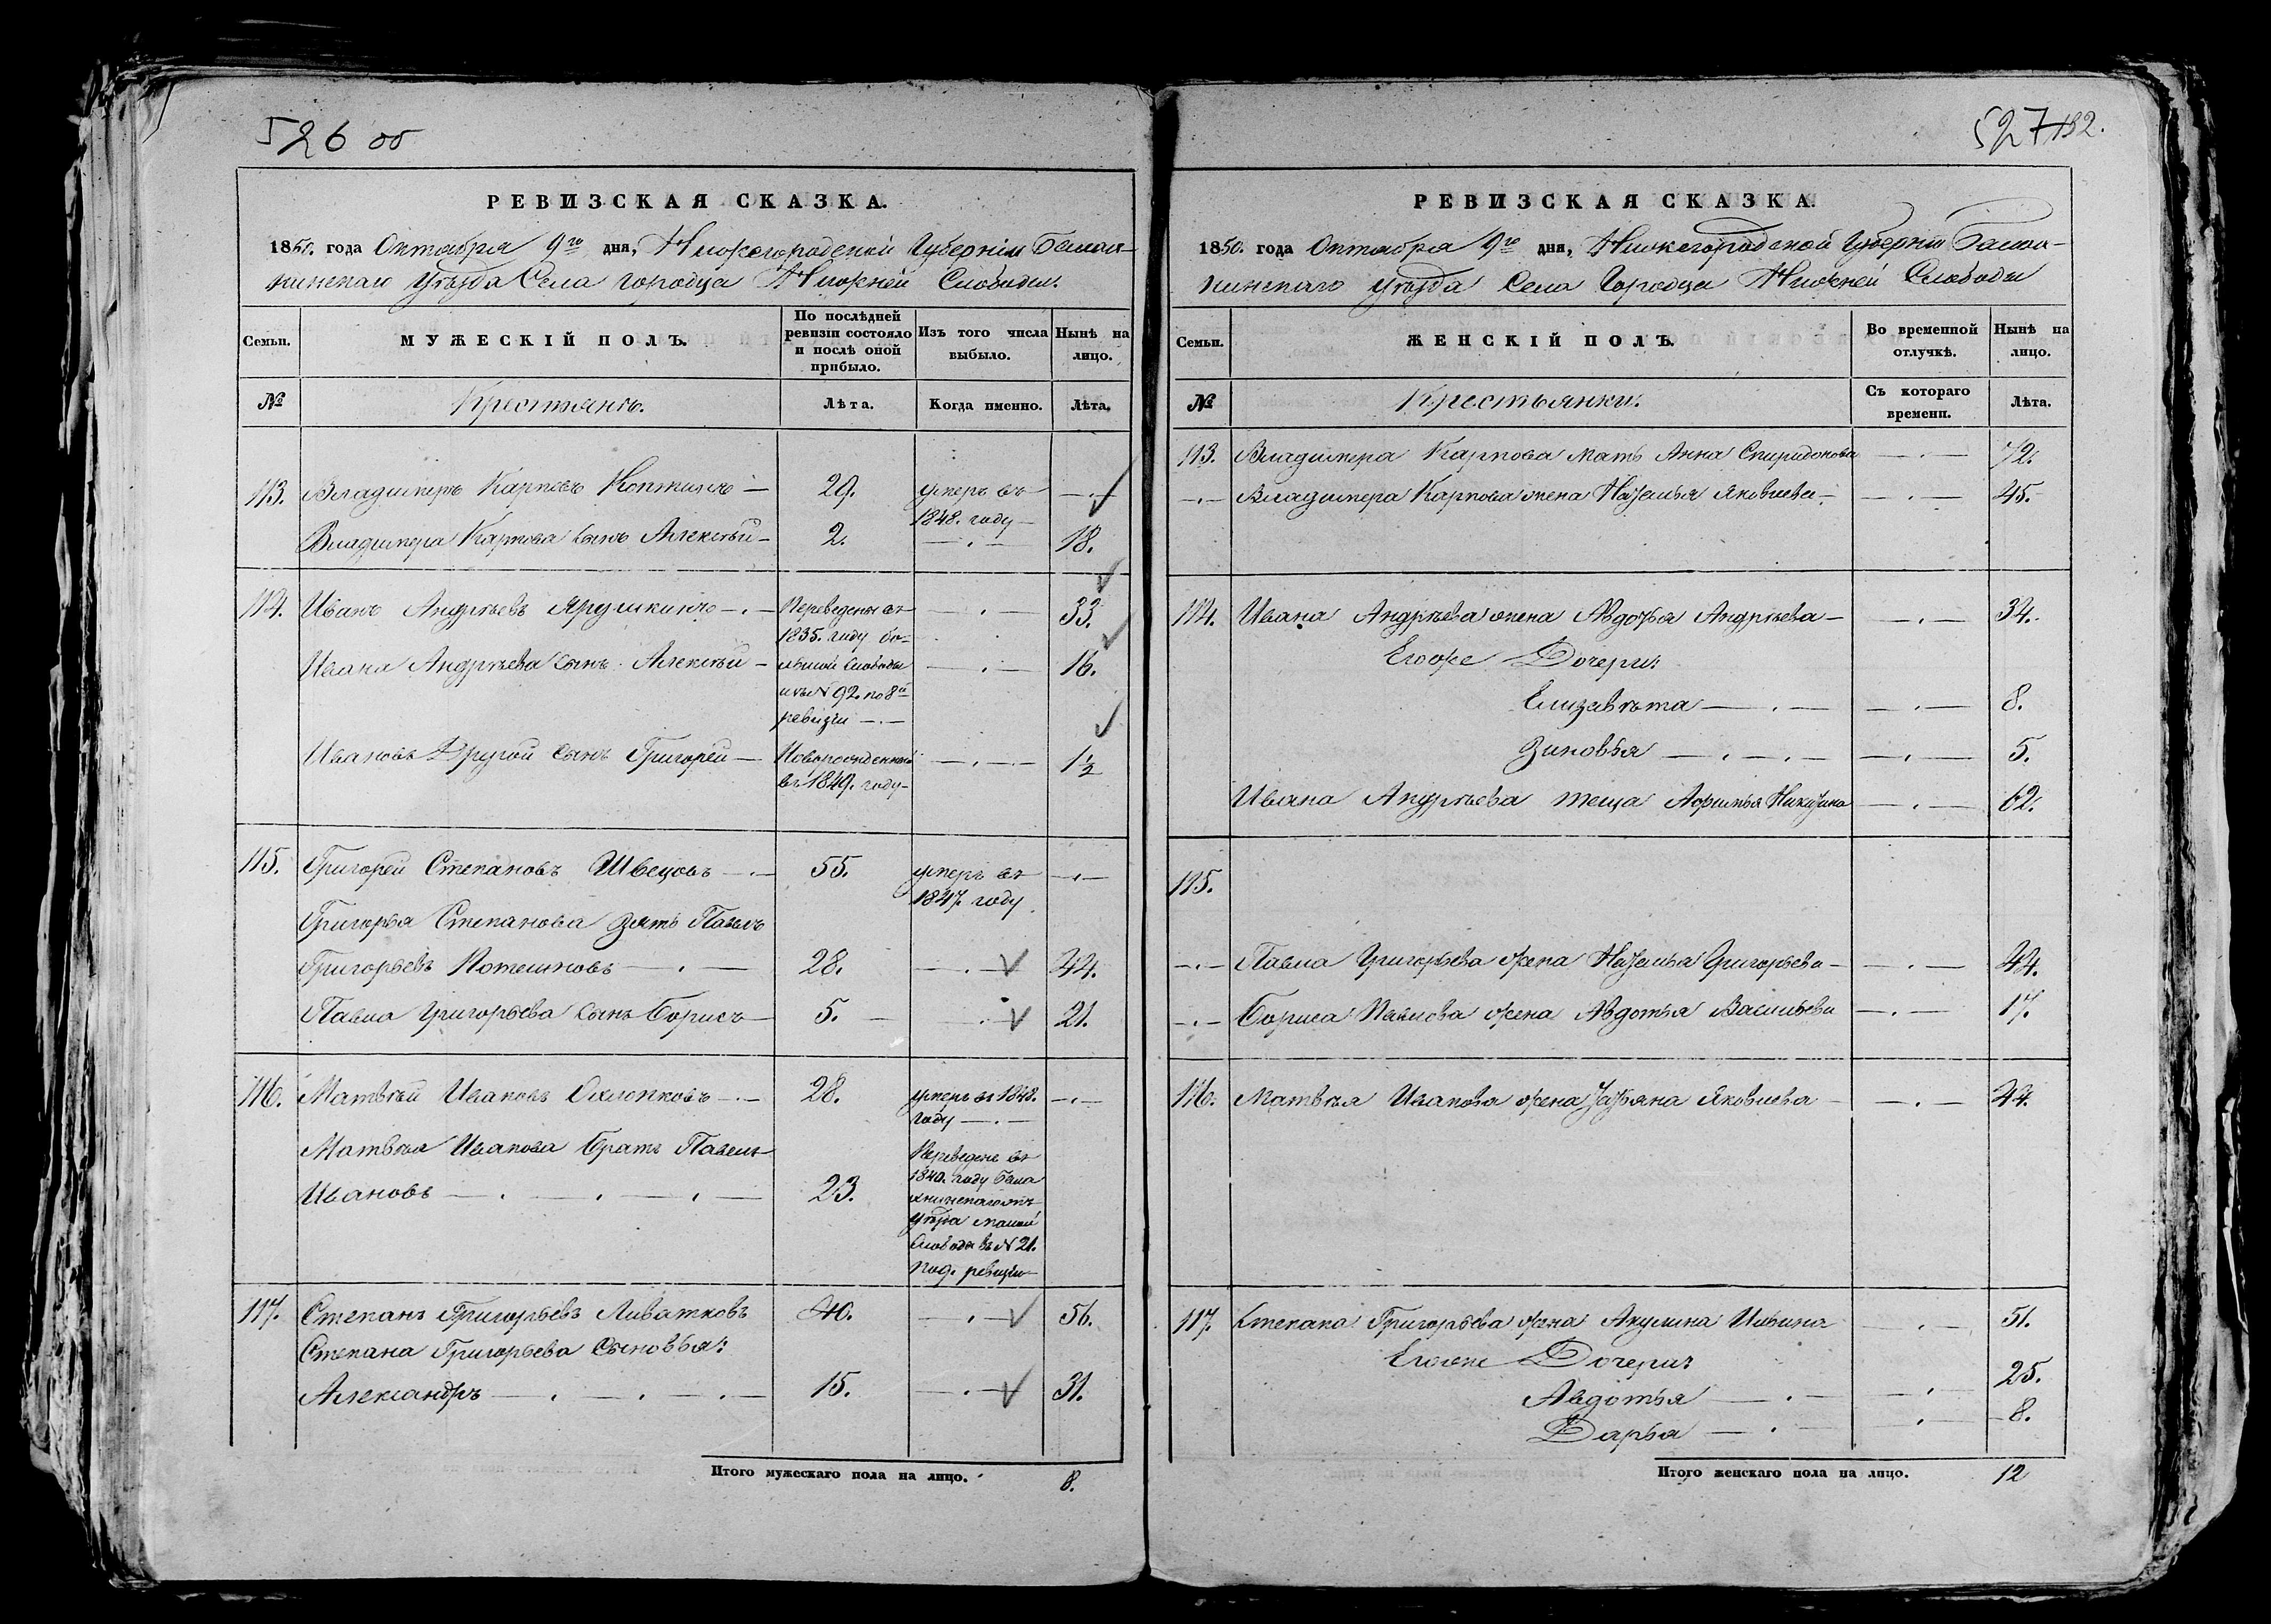 526 об
РЕВИЗСКАЯ СКАЗКА.
1850. года Октября 9го дня, Нижегородской Губернии Балах-
нинскаго Уѣзда Села Городца Нижней Слободы.
Семьи.
МУЖЕСКІЙ ПОЛЪ.
По послѣдней ревизіи состояло и послѣ оной прибыло.
Изъ того числа выбыло.
Нынѣ на лицо.
№
Крестьянъ.
Лѣта.
Когда именно.
Лѣта.
113. Владимеръ Карповъ 29. умеръ въ 1848. году
Владимера Карпова сынъ Алексѣй 2. 18.
114. Иванъ Андрѣевъ Ярушкинъ Переведены въ 33.
1835. году бо-
Ивана Андрѣева сынъ Алексѣй льшой Слободы 16.
изъ № 92. по 8й
ревизіи
Ивановъ Другой сынъ Григорей Новорожденной 1½
въ 1849. году
115. Григорей Степановъ Швецовъ 55. умеръ въ
1847. году
Григорья Степанова зять Павелъ
Григорьевъ 28. 44.
Павла Григорьева сынъ Борисъ 5. 21.
116. Матвѣй Ивановъ Охлопковъ 28. умеръ въ 1848.
году
Матвѣя Иванова братъ Павелъ Переведенъ въ
Ивановъ 23. 1840. году Бала
хнинскаго
уѣзда малой
Слободы въ № 21.
под. ревизіи
117. Степанъ Григорьевъ Ливатковъ 40. 56.
Степана Григорьева Сыновья:
Александръ 15. 31.
Итого мужескаго пола на лицо. 8.
527 132.
РЕВИЗСКАЯ СКАЗКА.
1850. года Октября 9го дня, Нижегородской Губерніи Балах-
нинскаго Уѣзда Села Городца Нижней Слободы
Семьи.
ЖЕНСКІЙ ПОЛЪ.
Во временной отлучкѣ.
Нынѣ на лицо.
№
Крестьянки.
Съ котораго времени.
Лѣта.
113. Владимера Карпова мать Анна Спиридонова 72.
Владимера Карпова жена Наталья Яковлева 45.
114. Ивана Андрѣева жена Авдотья Андрѣева 34.
Егоже Дочери:
Елизавѣта 8.
Зиновья 5.
Ивана Андрѣева теща Афимья Никитина 62.
115.
Павла Григорьева жена Наталья Григорьева 44.
Бориса Павлова жена Авдотья Васильева 17.
116. Матвѣя Иванова жена Татьяна Яковлева 44.
117. Степана Григорьева жена Акулина Ильина 51.
Егоже Дочери:
Авдотья 25.
Дарья 8.
Итого женскаго пола на лицо. 12